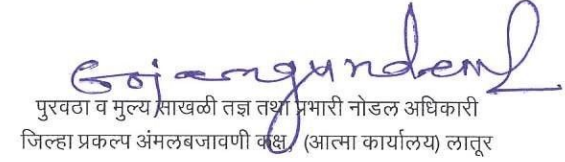 पुरवठा व मुल्य साखळी तज्ञ तथा प्रभारी नोडल अधिकारी
जिल्हा प्रकल्प अंमलबजावणी कक्ष, (आत्मा कार्यालय) लातूर